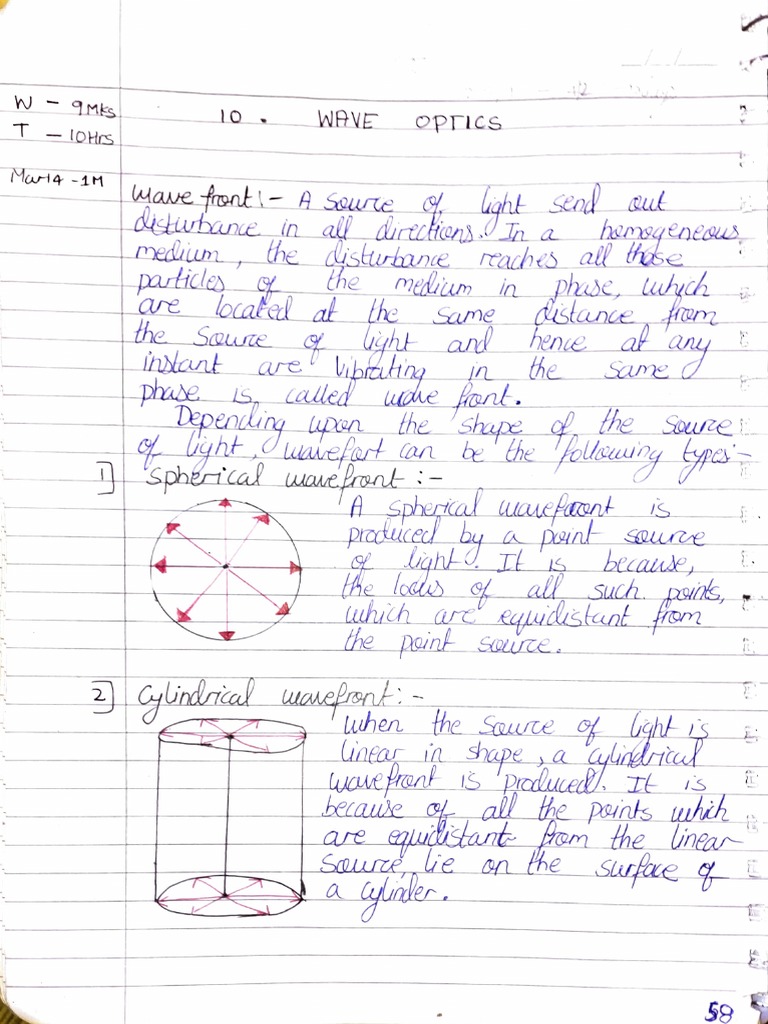 W - 9Mks
T - 10Hrs
10. WAVE OPTICS
Mar14 -1M
Wave front:- A source of light send out
disturbance in all directions. In a homogeneous
medium, the disturbance reaches all those
particles of the medium in phase, which
are located at the same distance from
the source of light and hence at any
instant are vibrating in the same
phase is called wave front.
Depending upon the shape of the source
of light, wavefort can be the following types:-
1] Spherical wavefront :-
A spherical wavefront is
produced by a point source
of light. It is because,
the locus of all such points,
which are equidistant from
the point source.
2] Cylindrical wavefront:-
When the source of light is
linear in shape, a cylindrical
wavefront is produced. It is
because of all the points which
are equidistant from the linear
source, lie on the surface of
a cylinder.
58